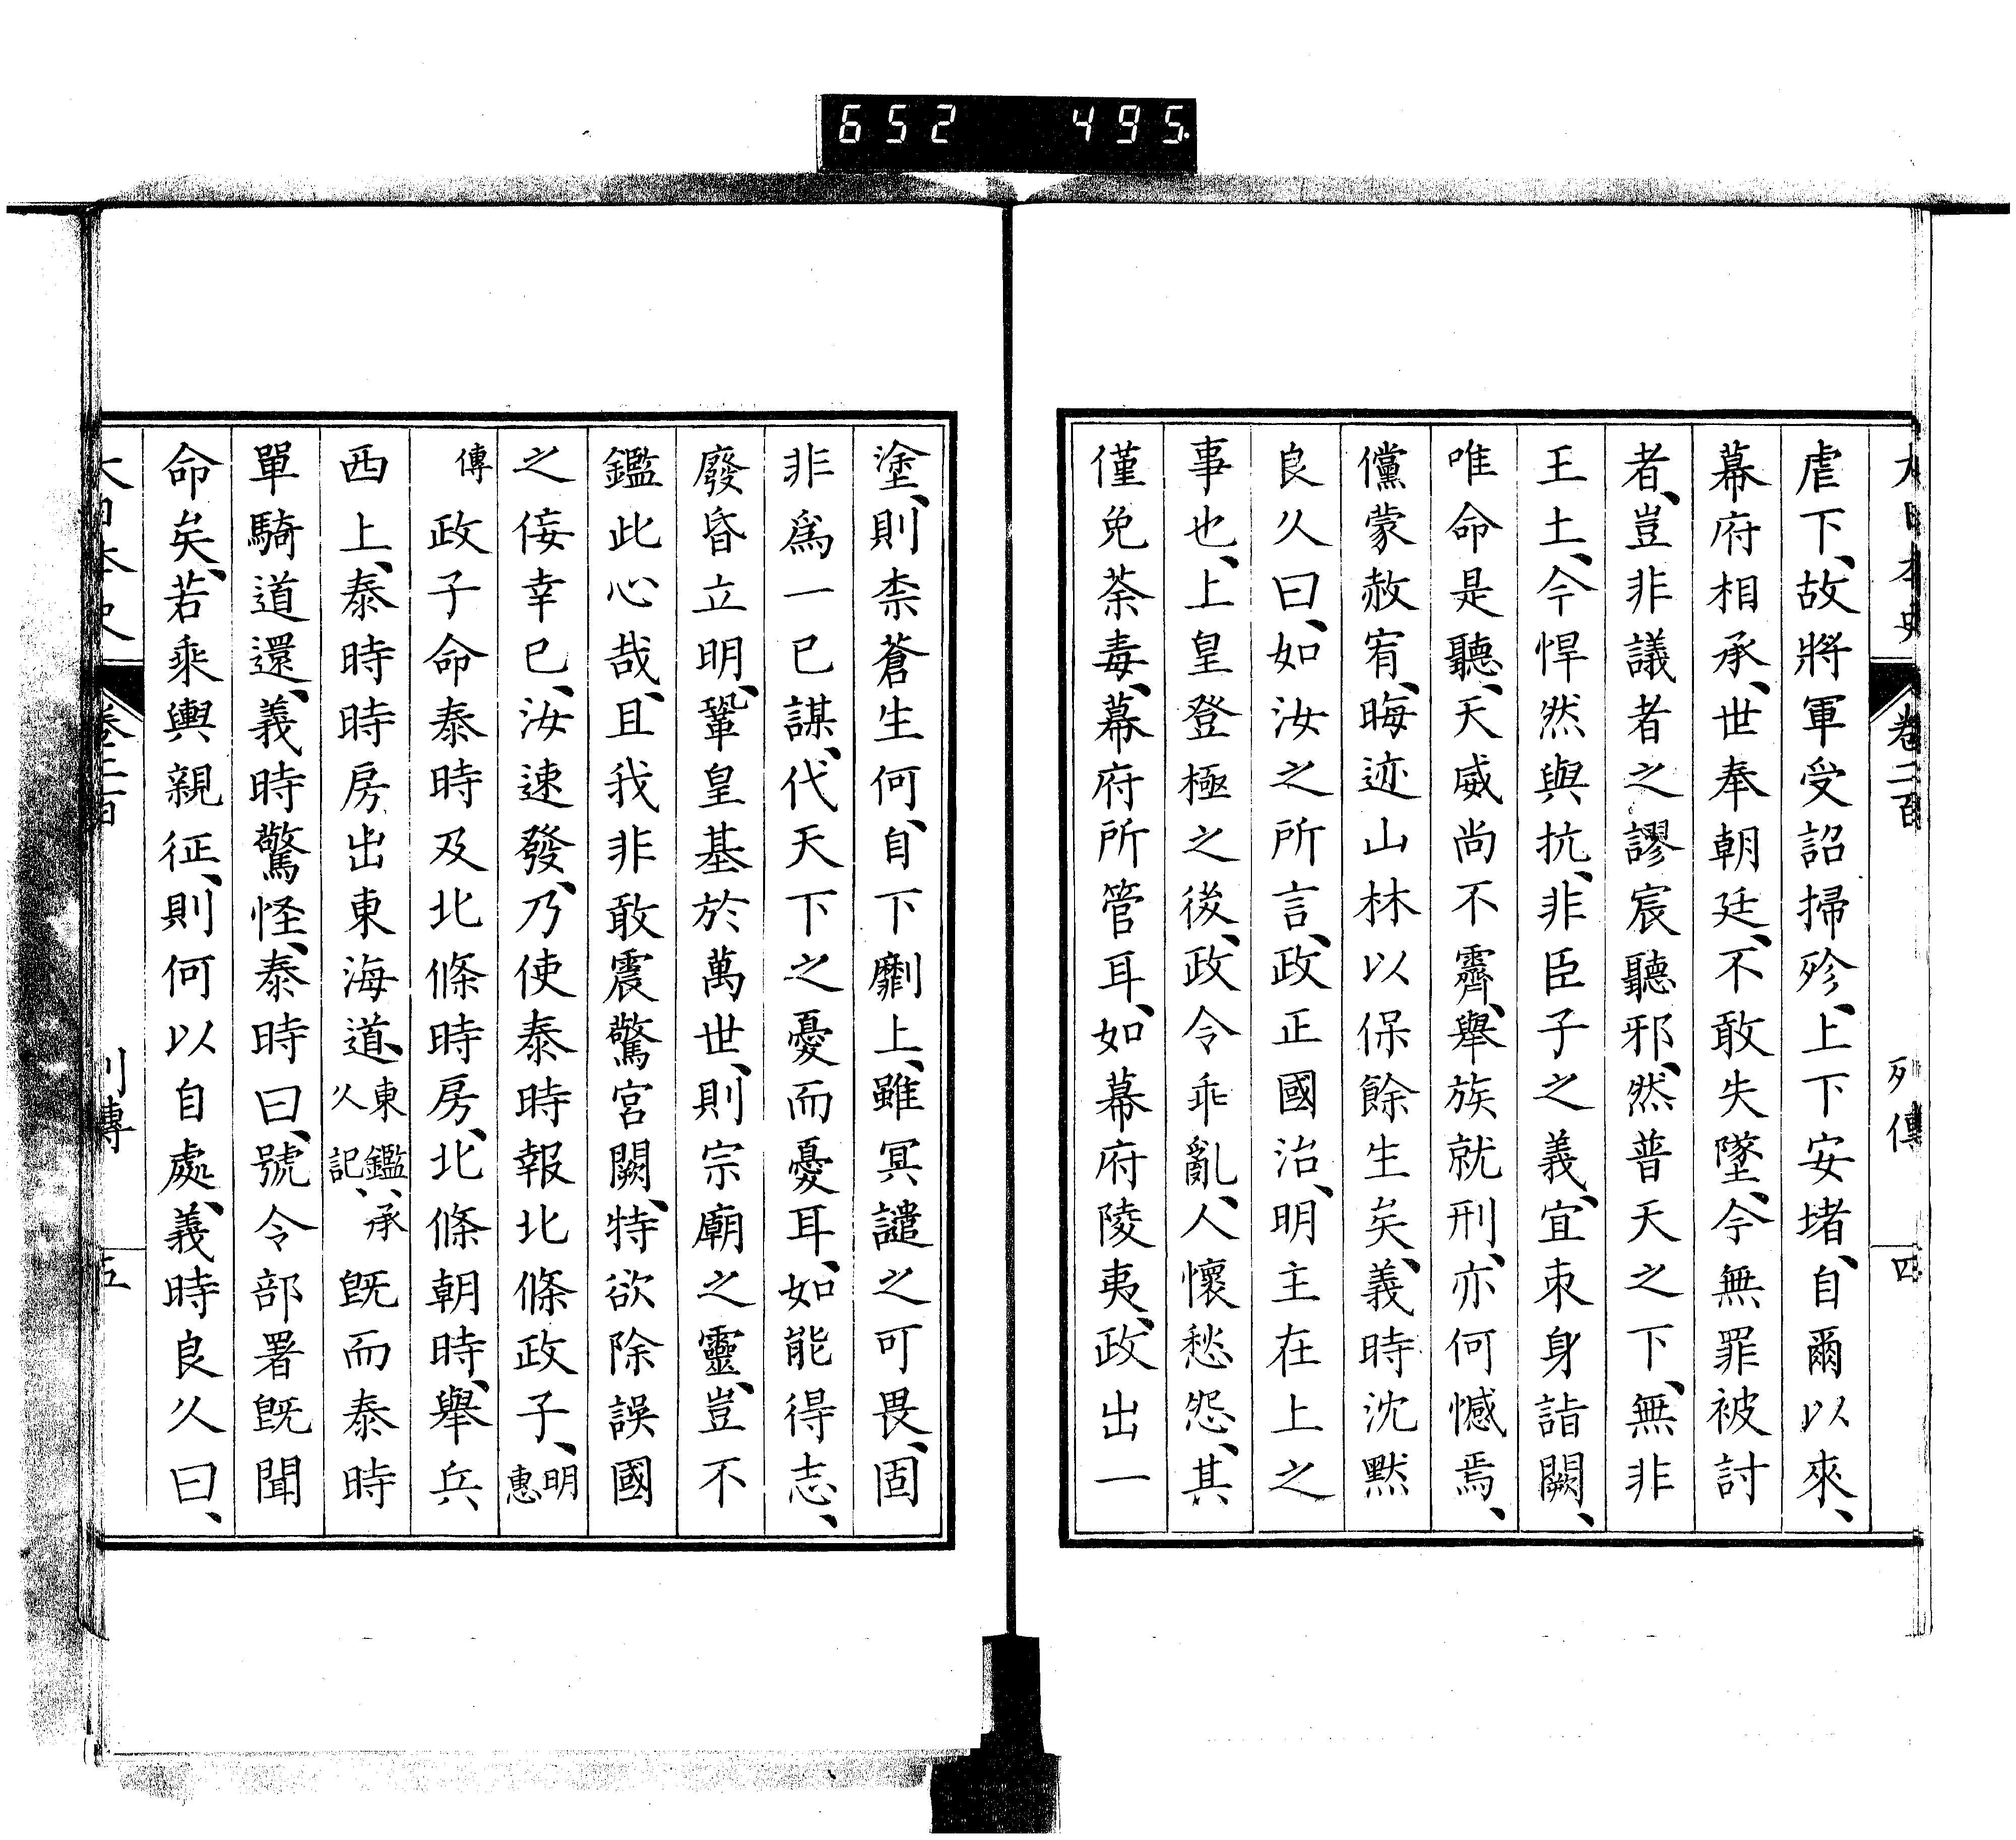 652 495
大日本史 卷二百 列傳 四
虐下、故將軍受詔掃殄、上下安堵、自爾以來、
幕府相承、世奉朝廷、不敢失墜、今無罪被討
者、豈非議者之謬宸聽邪、然普天之下、無非
王土、今悍然與抗、非臣子之義、宜束身詣闕、
唯命是聽、天威尚不霽、舉族就刑、亦何憾焉、
儻蒙赦宥、晦迹山林以保餘生矣、義時沈默
良久曰、如汝之所言、政正國治、明主在上之
事也、上皇登極之後、政令乖亂、人懷愁怨、其
僅免荼毒、幕府所管耳、如幕府陵夷、政出一
塗、則柰蒼生何、自下劘上、雖冥譴之可畏、固
非爲一已謀、代天下之憂而憂耳、如能得志、
廢昏立明、鞏皇基於萬世、則宗廟之靈、豈不
鑑此心哉、且我非敢震驚宮闕、特欲除誤國
之侫幸已、汝速發、乃使泰時報北條政子、明惠
傳政子命泰時及北條時房、北條朝時、舉兵
西上、泰時時房出東海道、東鑑、承久記、既而泰時
單騎道還、義時驚怪、泰時曰、號令部署既聞
命矣、若乘輿親征、則何以自處、義時良久曰、
大日本史 卷二百 列傳 五